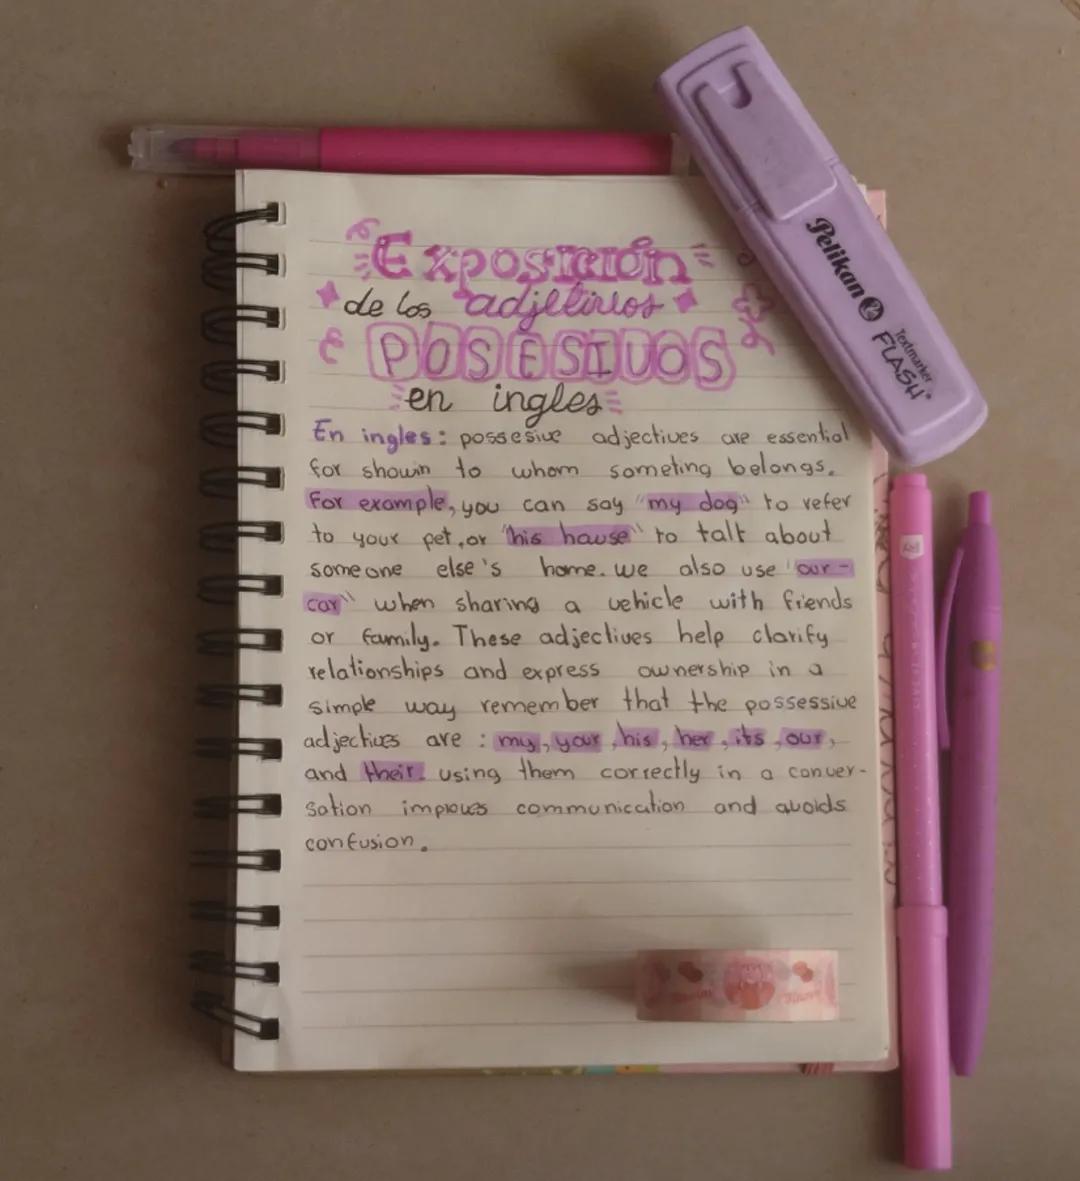 Exposición
de los adjetivos
POSESIVOS
en ingles
En ingles: possesive adjectives are essential
for showin to whom someting belongs.
For example, you can say "my dog" to refer
to your pet, or "his hause" to talt about
someone else's home. we also use "our-
car" when sharing a vehicle with friends
or family. These adjectives help clarify
relationships and express ownership in a
simple way remember that the possessive
adjectives are : my, your, his, her, its, our,
and their. using them correctly in a conver-
sation improves communication and avoids
confusion.
Pelikan
Textmarker
FLASH